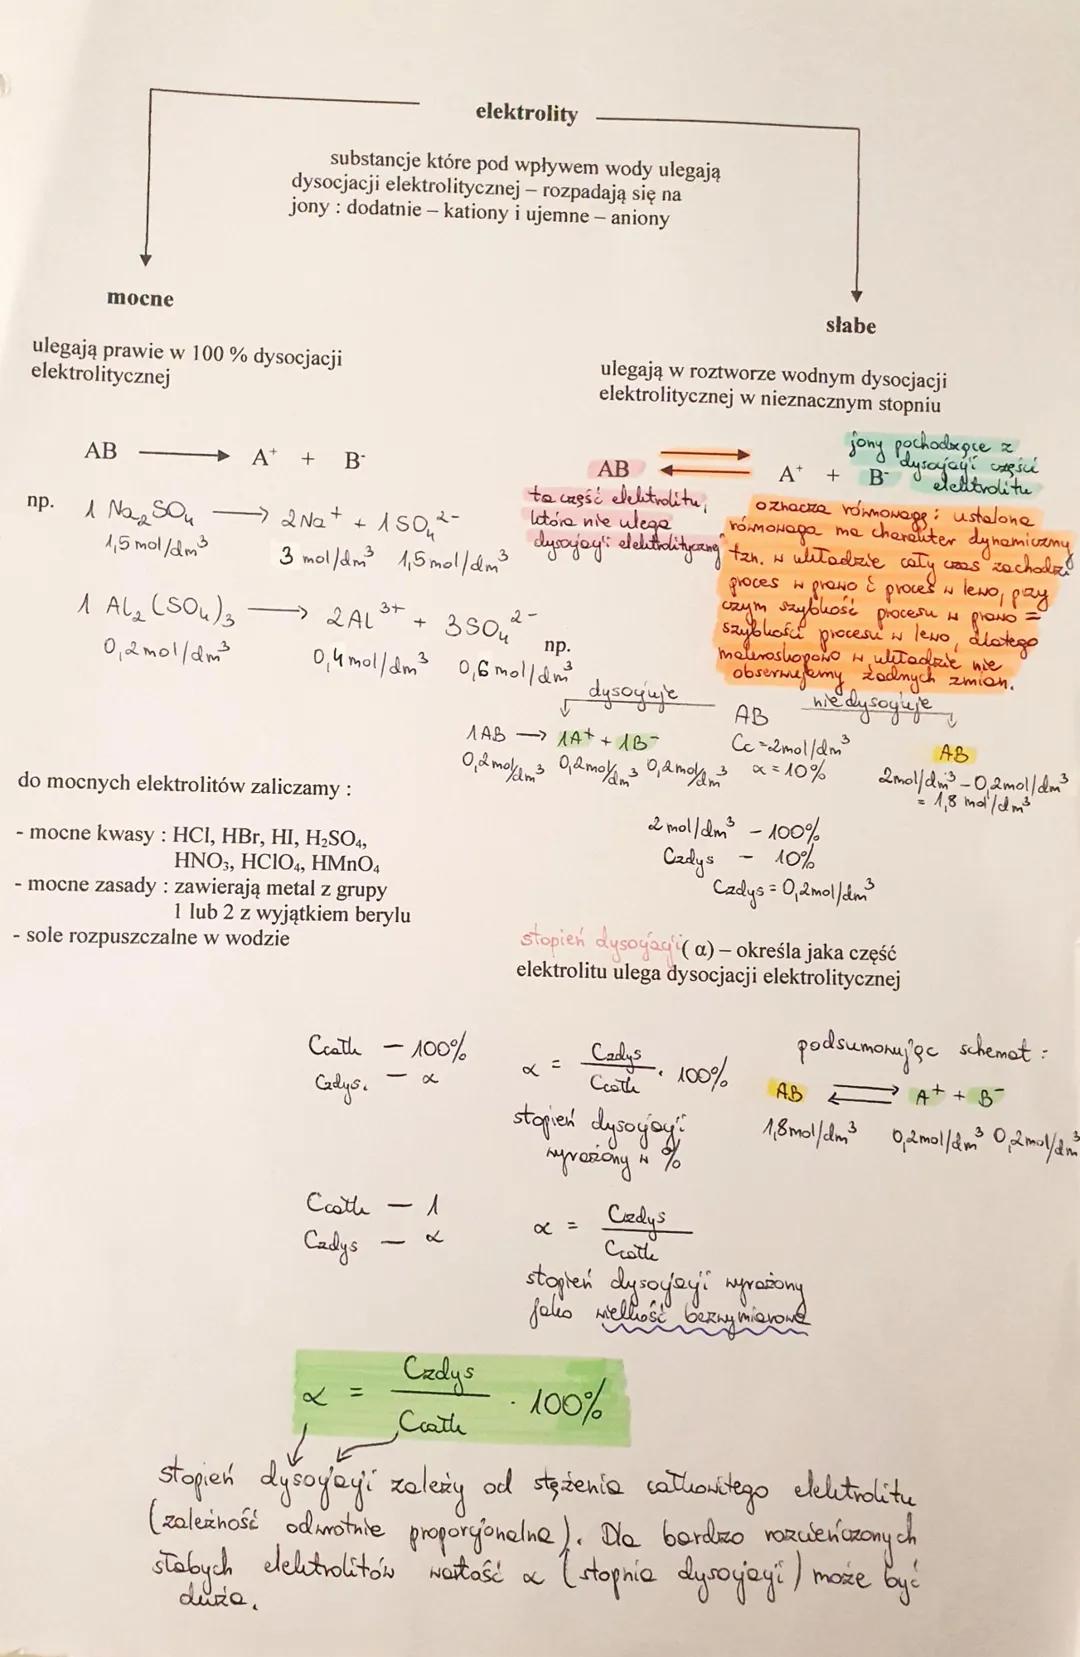 elektrolity
substancje które pod wpływem wody ulegają
dysocjacji elektrolitycznej – rozpadają się na
jony : dodatnie – kationy i ujemne – aniony
mocne
ulegają prawie w 100 % dysocjacji
elektrolitycznej
AB ⟶ A⁺ + B⁻
np. 1 Na₂SO₄ ⟶ 2Na⁺ + 1SO₄²⁻
1,5 mol/dm³ 3 mol/dm³ 1,5 mol/dm³
1 Al₂(SO₄)₃ ⟶ 2Al³⁺ + 3SO₄²⁻
0,2 mol/dm³ 0,4 mol/dm³ 0,6 mol/dm³
do mocnych elektrolitów zaliczamy :
- mocne kwasy : HCl, HBr, HI, H₂SO₄,
HNO₃, HClO₄, HMnO₄
- mocne zasady : zawierają metal z grupy
1 lub 2 z wyjątkiem berylu
- sole rozpuszczalne w wodzie
słabe
ulegają w roztworze wodnym dysocjacji
elektrolitycznej w nieznacznym stopniu
jony pochodzące z
dysocjacji części
elektrolitu
AB ⇄ A⁺ + B⁻
ta część elektrolitu,
która nie ulega
dysocjacji elektrolitycznej
oznacza równowagę: ustalona
równowaga ma charakter dynamiczny
tzn. w układzie cały czas zachodzi
proces w prawo i proces w lewo, przy
czym szybkość procesu w prawo =
szybkości procesu w lewo, dlatego
makroskopowo w układzie nie
obserwujemy żadnych zmian.
np.
dysocjuje AB nie dysocjuje
1AB ⟶ 1A⁺ + 1B⁻ Cc = 2mol/dm³ AB
0,2mol/dm³ 0,2mol/dm³ 0,2mol/dm³ α = 10% 2mol/dm³ - 0,2mol/dm³
= 1,8 mol/dm³
2 mol/dm³ - 100%
Czdys - 10%
Czdys = 0,2mol/dm³
stopień dysocjacji ( α) – określa jaka część
elektrolitu ulega dysocjacji elektrolitycznej
Ccałk – 100%
Czdys. – α
α = Czdys / Ccałk · 100%
stopień dysocjacji
wyrażony w %
podsumowując schemat :
AB ⇄ A⁺ + B⁻
1,8mol/dm³ 0,2mol/dm³ 0,2mol/dm³
Ccałk – 1
Czdys – α
α = Czdys / Ccałk
stopień dysocjacji wyrażony
jako wielkość bezwymiarowa
α = Czdys / Ccałk · 100%
stopień dysocjacji zależy od stężenia całkowitego elektrolitu
(zależność odwrotnie proporcjonalna). Dla bardzo rozcieńczonych
słabych elektrolitów wartość α (stopnia dysocjacji) może być
duża.